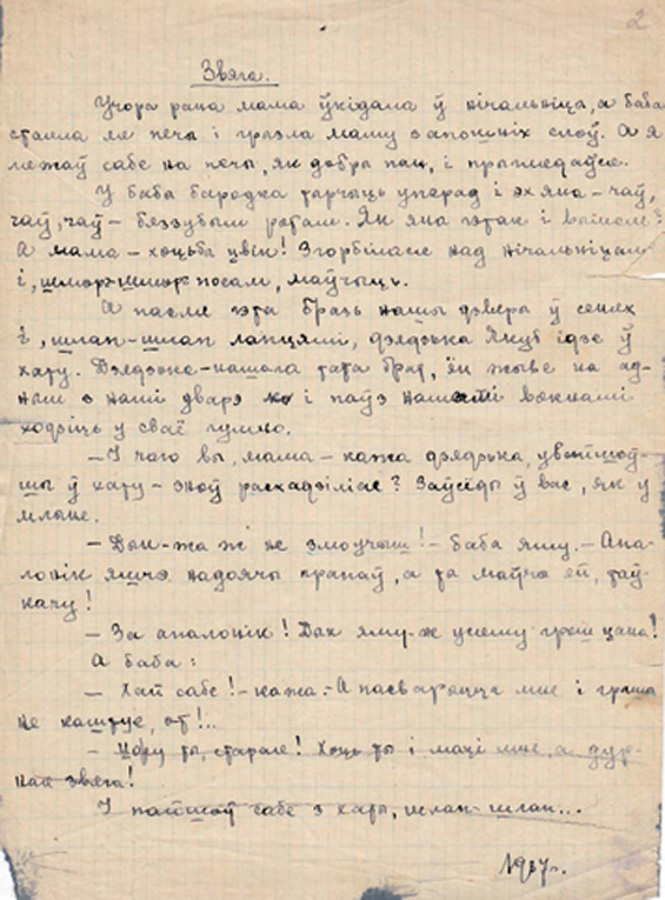 2
Звяга.
Учора рана мама ўкідала ў нічальніцы, а баба
стаяла ля печы і грызла маму з апошніх слоў. А я
ляжаў сабе на печы, як добры пан, і прыглядаўся.
У бабы бародка тарчыць уперад і эх яна – чаў,
чаў, чаў – беззубым ротам. Як яна гэтак і
А мама – хоцьбы цвік! Згорбілася над нічальніцамі
і, шморг-шморг носам, маўчыць.
А пасля гэта бразь нашы дзверы ў сенях
і, шлап-шлап лапцямі, дзядзька Якуб ідзе ў
хату. Дзядзька – нашага тата брат, ён жыве на ад-
ным з намі дварэ і паўз нашымі вокнамі
ходзіць у сваё гумно.
– І чого вы, мама – кажа дзядзька, увайшоў-
шы ў хату – зноў расхадзіліся? Заўсёды ў вас, як у
млыне.
– Дык-жа ж не змоўчыш! – баба яму. – Апа-
лонік яшчэ надоячы прапаў, а ты маўчы ёй, таў-
качу!
– За апалонік! Дык яму-ж усяму грош цана!
А баба:
– Хай сабе! – кажа. – А пасварыцца мне і граша
не каштуе, от!..
– ты, старая! Хоць ты і маці мне, а дур-
ная звяга!
І пайшоў сабе з хаты, шлап-шлап...